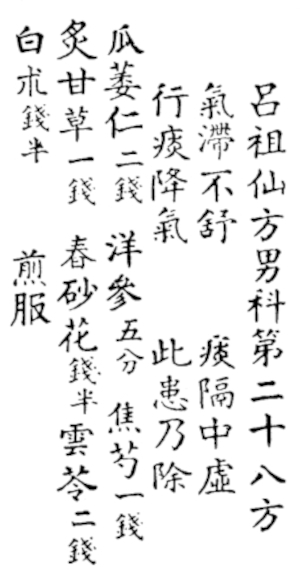 呂祖仙方男科第二十八方
氣滯不舒 痰隔中虛
行痰降氣 此患乃除
瓜蔞仁二錢 洋參五分 焦芍一錢
炙甘草一錢 春砂花錢半 雲苓二錢
白朮錢半 煎服